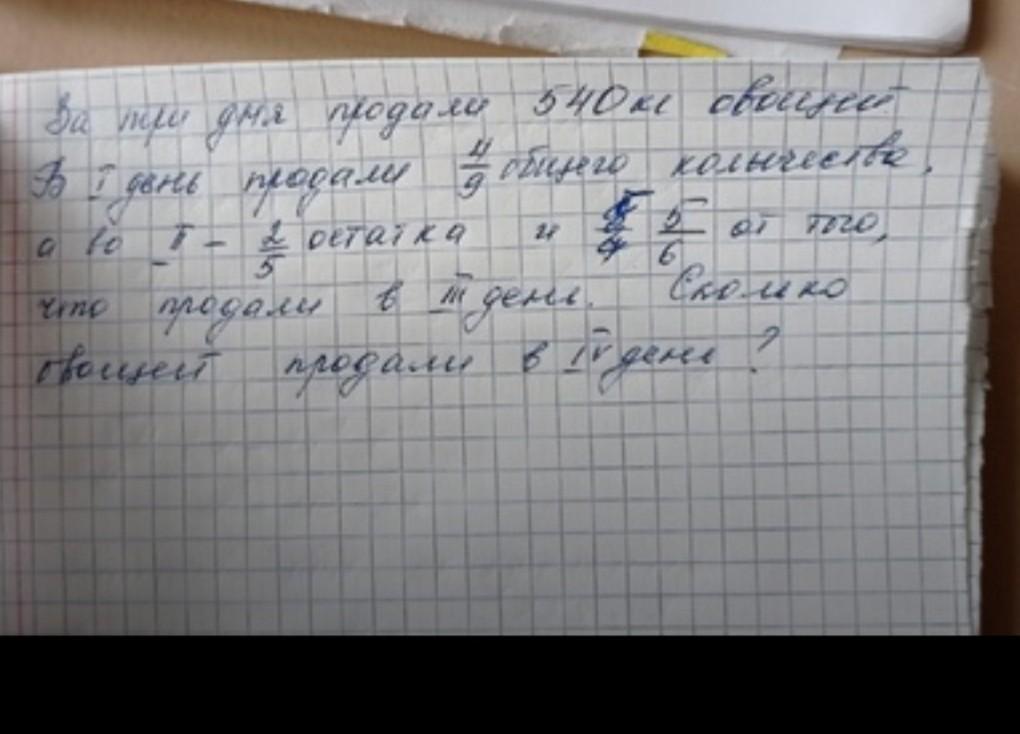 За три дня продали 540 кг овощей.
В I день продали 4/9 общего количества,
а во II - 2/5 остатка и 5/6 от того,
что продали в III день. Сколько
овощей продали в IV день?